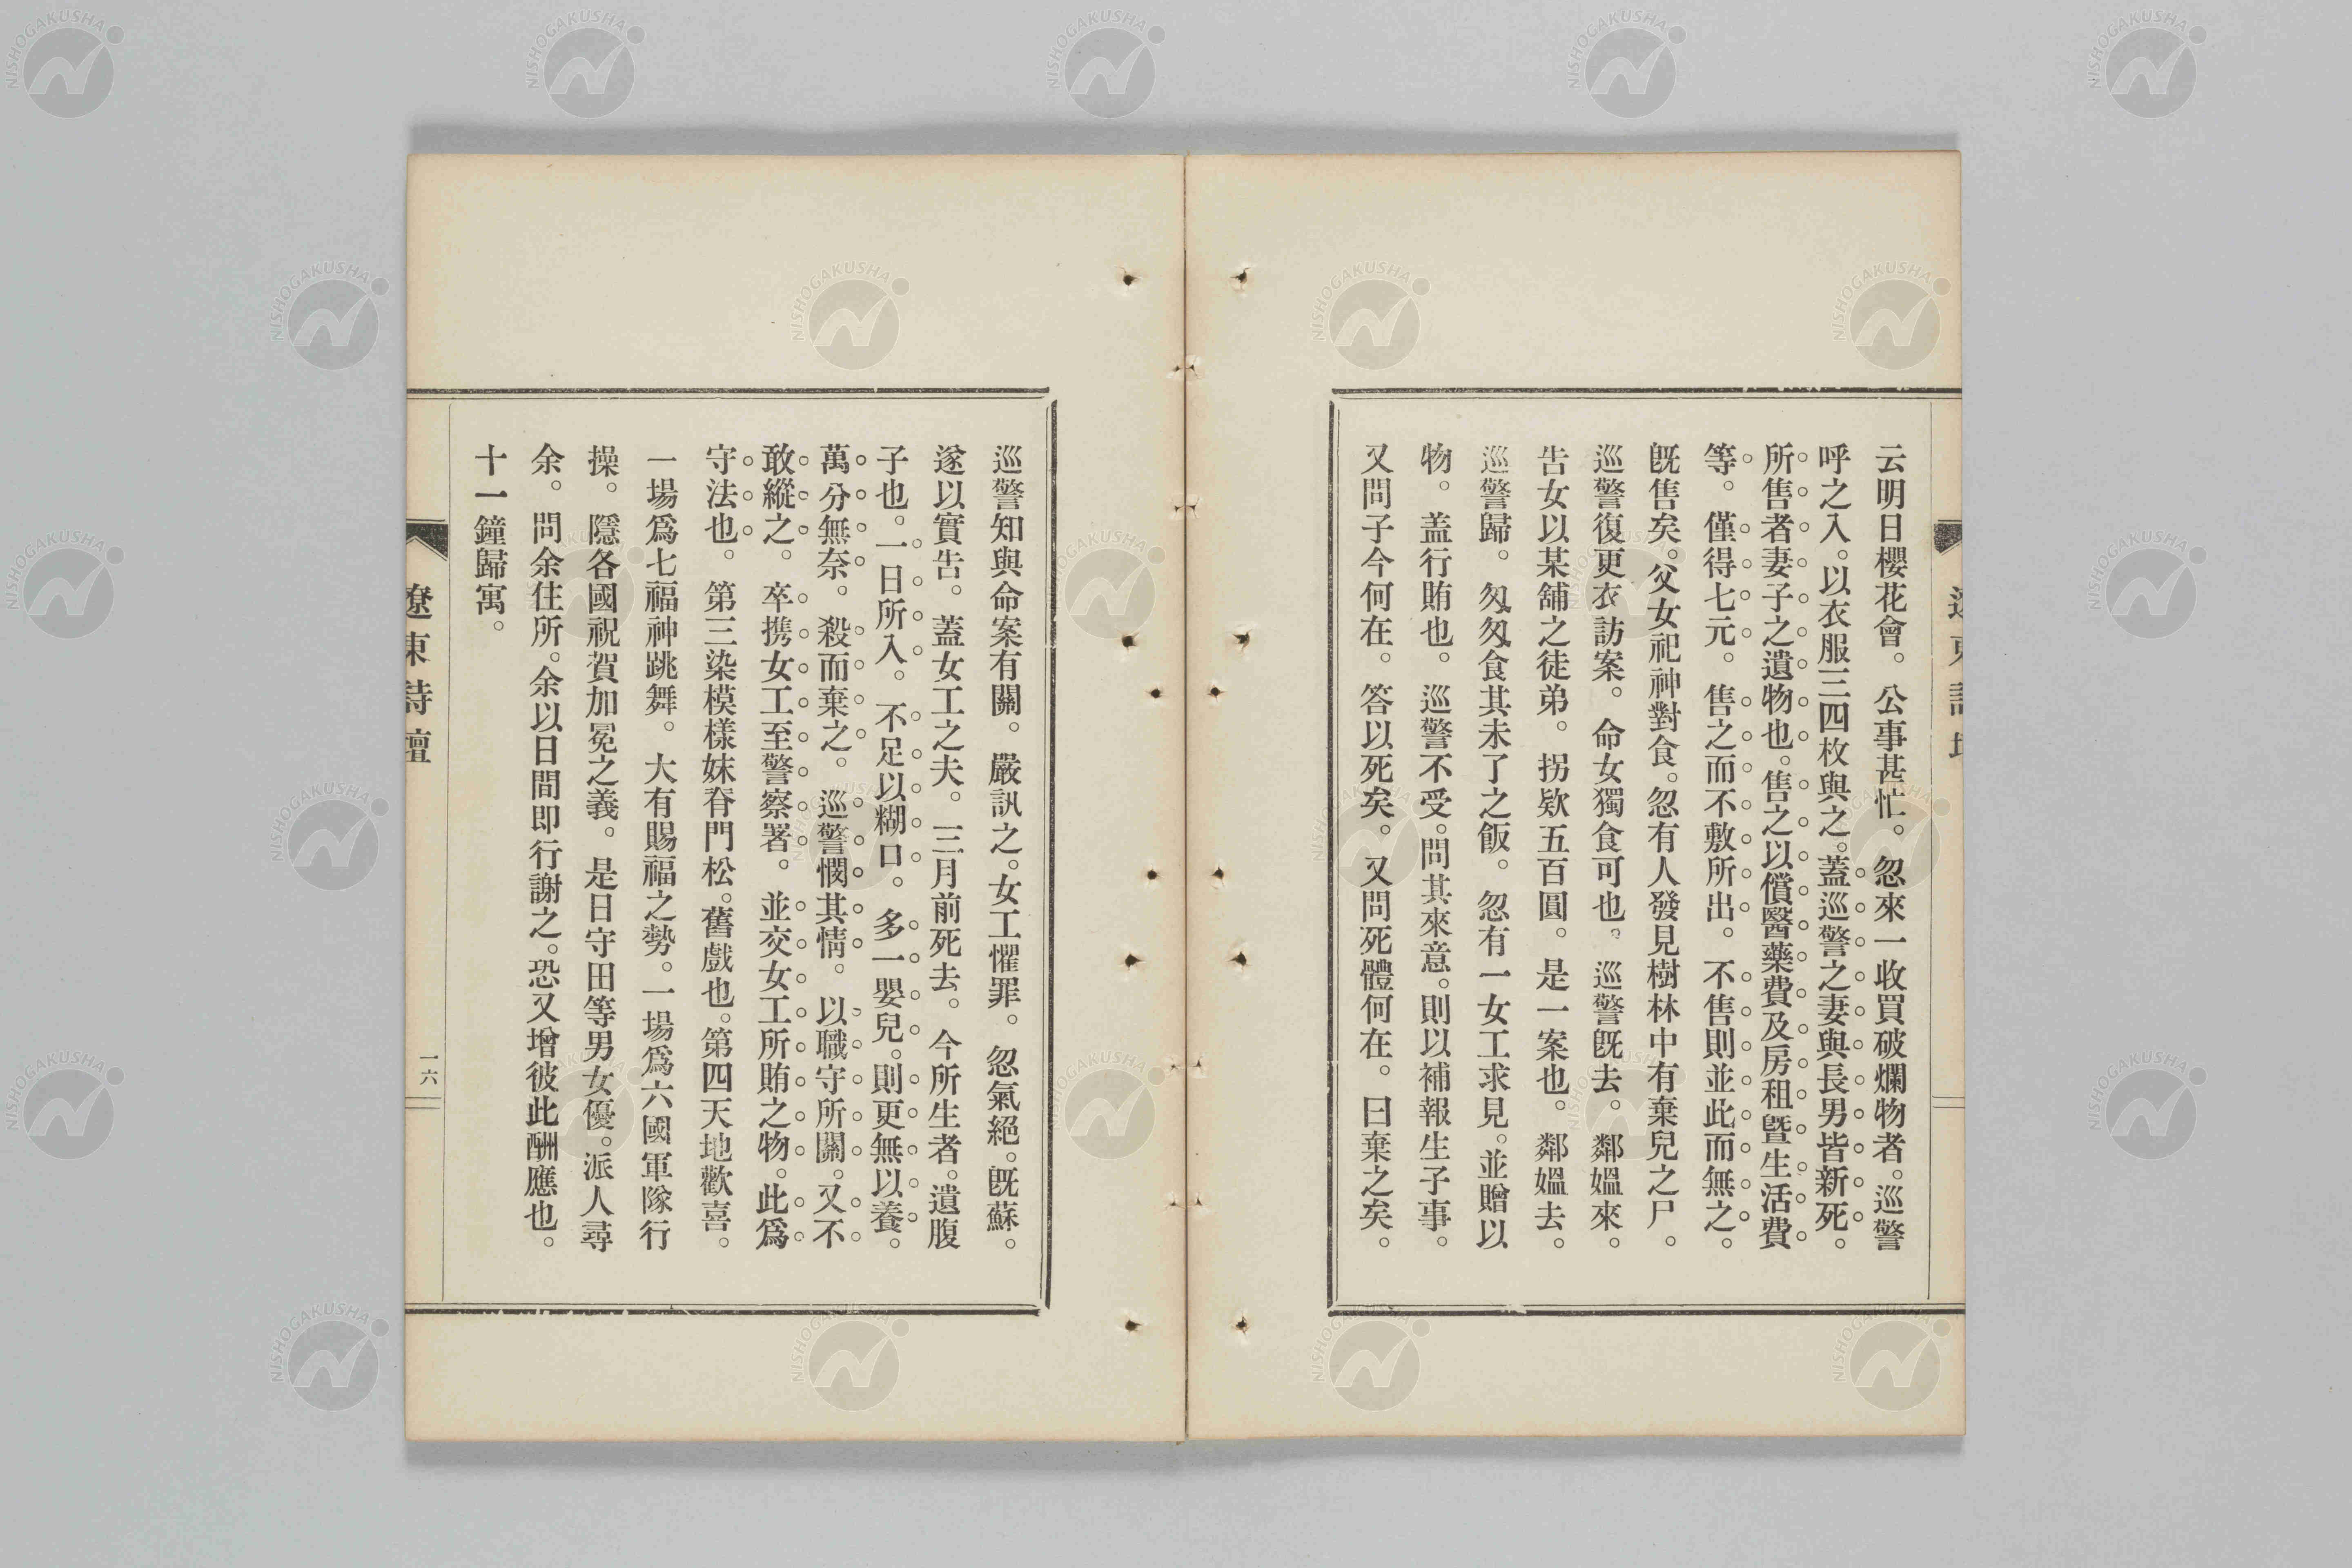 云明日櫻花會。公事甚忙。忽來一收買破爛物者。巡警
呼之入。以衣服三四枚與之。蓋巡警之妻與長男皆新死。
所售者妻子之遺物也。售之以償醫藥費及房租曁生活費
等。僅得七元。售之而不敷所出。不售則並此而無之。
旣售矣。父女祀神對食。忽有人發見樹林中有棄兒之尸。
巡警復更衣訪案。命女獨食可也。巡警旣去。鄰媼來。
告女以某舖之徒弟。拐欵五百圓。是一案也。鄰媼去。
巡警歸。匆匆食其未了之飯。忽有一女工求見。並贈以
物。蓋行賄也。巡警不受。問其來意。則以補報生子事。
又問子今何在。答以死矣。又問死體何在。曰棄之矣。
巡警知與命案有關。嚴訊之。女工懼罪。忽氣絕。旣蘇。
遂以實告。蓋女工之夫。三月前死去。今所生者。遺腹
子也。一日所入。不足以糊口。多一嬰兒。則更無以養。
萬分無奈。殺而棄之。巡警憫其情。以職守所關。又不
敢縱之。卒携女工至警察署。並交女工所賄之物。此爲
守法也。第三染模樣妹脊門松。舊戲也。第四天地歡喜。
一場爲七福神跳舞。大有賜福之勢。一場爲六國軍隊行
操。隱各國祝賀加冕之義。是日守田等男女優。派人尋
余。問余住所。余以日間卽行謝之。恐又增彼此酬應也。
十一鐘歸寓。
遼東詩壇
一六
NISHOGAKUSHA